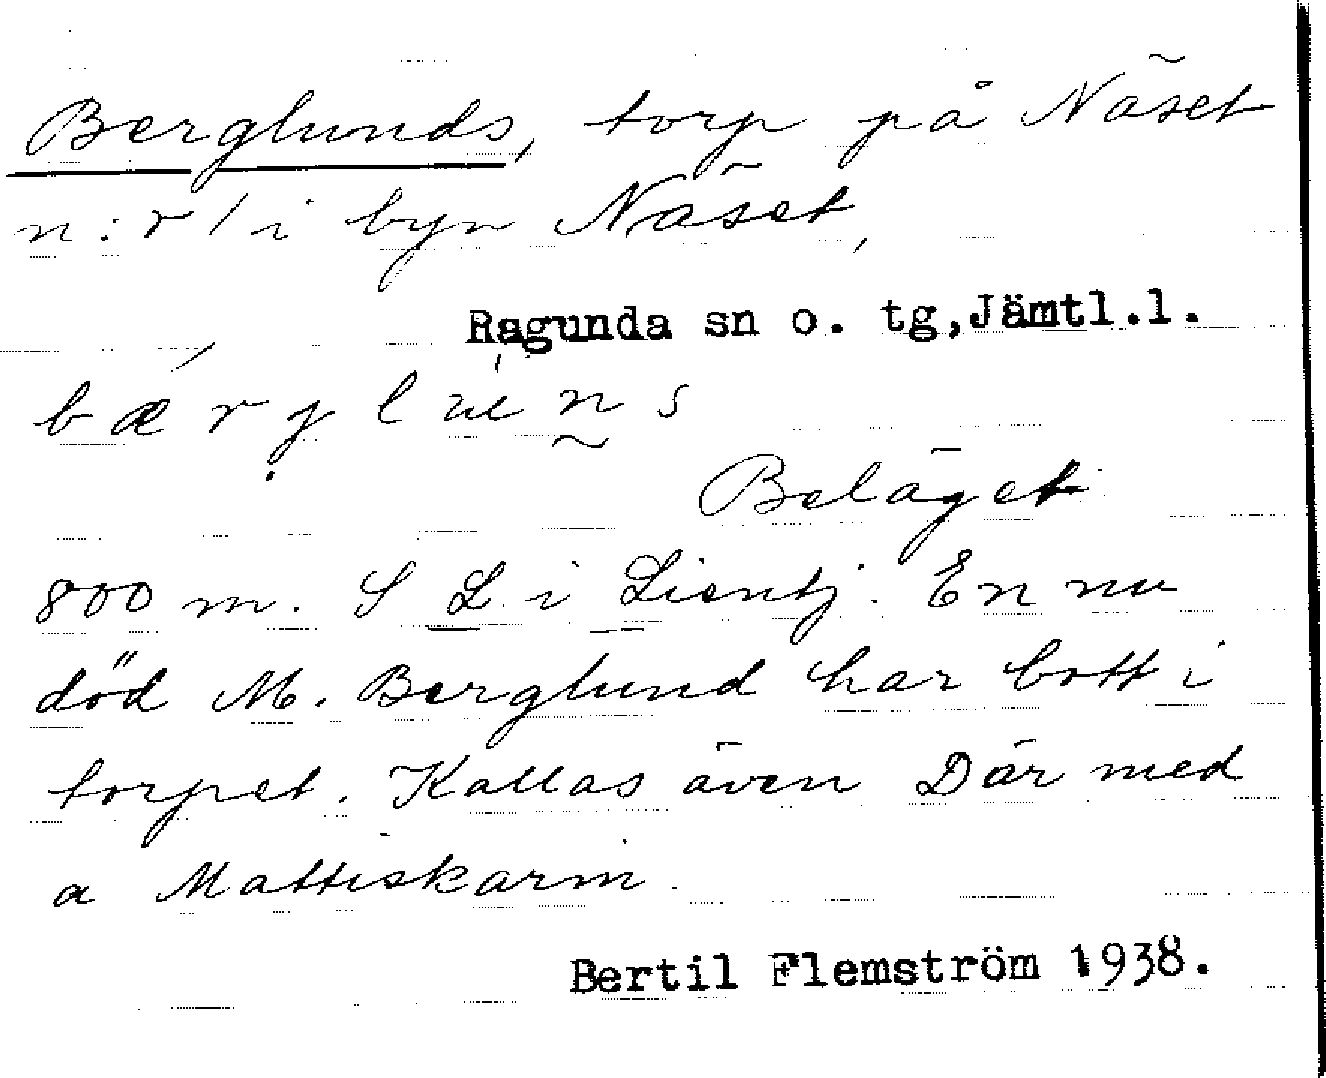 Berglunds, torp på Näset
n:r 1 i byn Näset,
Ragunda sn o. tg,Jämtl.l.
Beläget
800 m. S L i Lientj. En nu
död M. Berglund har bott i
torpet. Kallas även Där med
a Mattiskarin.
Bertil Flemström 1938.